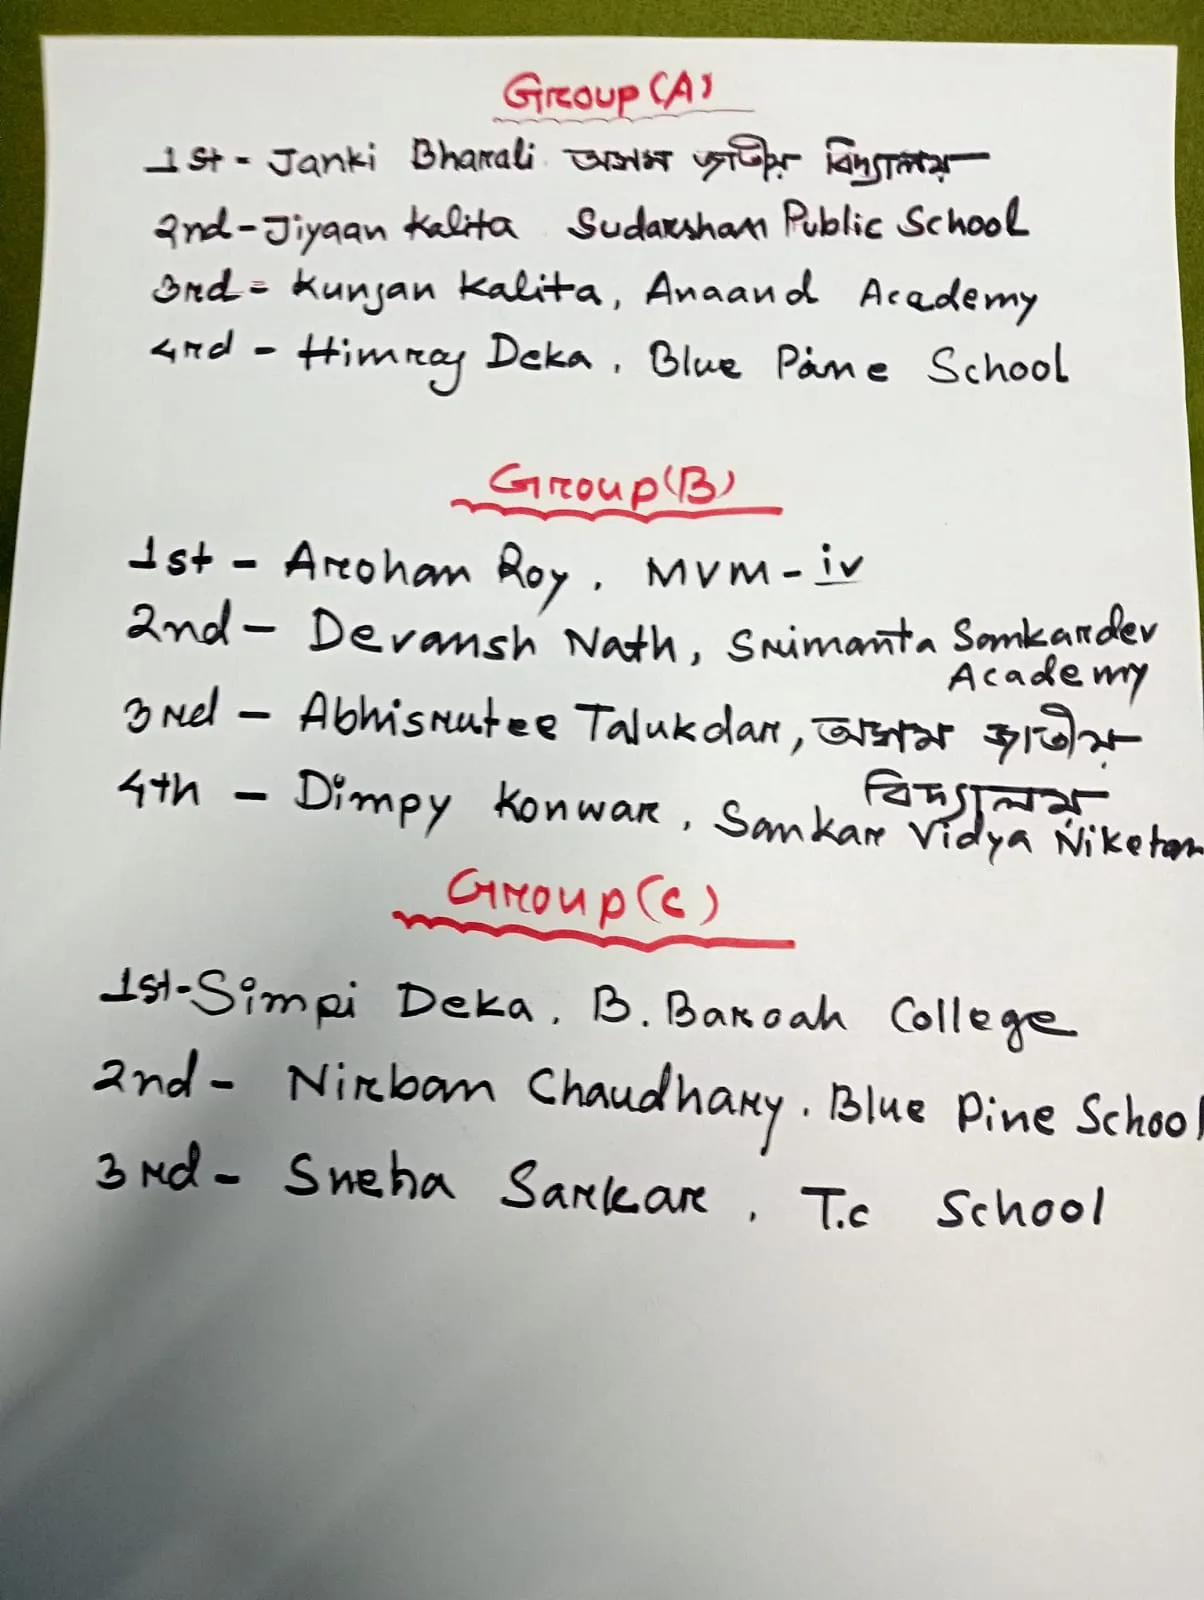 Group (A)
1st - Janki Bharali অসম জাতীয় বিদ্যালয়
2nd - Jiyaan Kalita Sudarsham Public School
3rd - Kunjan Kalita, Anaand Academy
4rd - Himraj Deka, Blue Pine School
Group (B)
1st - Arohan Roy, MVM - iv
2nd - Devansh Nath, Srimanta Sankardev
Academy
3rd - Abhisrutee Talukdar, অসম জাতীয়
বিদ্যালয়
4th - Dimpy Konwar, Sankar Vidya Niketan
Group (C)
1st - Simpi Deka, B. Baroah College
2nd - Nirban Chaudhary, Blue Pine School
3rd - Sneha Sarkar, T.c School